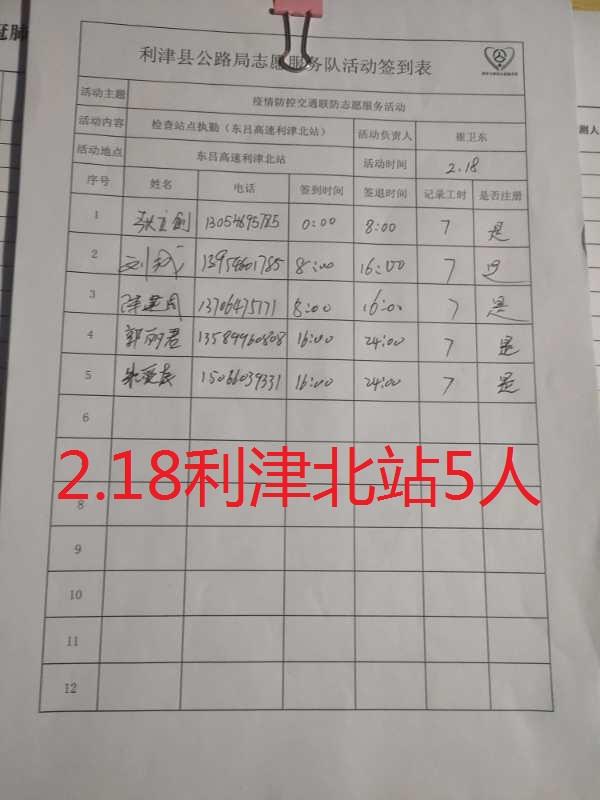 冠肺
利津县公路局志愿服务队活动签到表
活动主题 疫情防控交通联防志愿服务活动
活动内容 检查站点执勤（东吕高速利津北站） 活动负责人 崔卫东
活动地点 东吕高速利津北站 活动时间 2.18
序号 姓名 电话 签到时间 签退时间 记录工时 是否注册
1 13054695785 0:00 8:00 7 是
2 13954601785 8:00 16:00 7 是
3 13706475171 8:00 16:00 7 是
4 郭丽君 13589960808 16:00 24:00 7 是
5 15066039331 16:00 24:00 7 是
6
2.18利津北站5人
8
9
10
11
12
测人